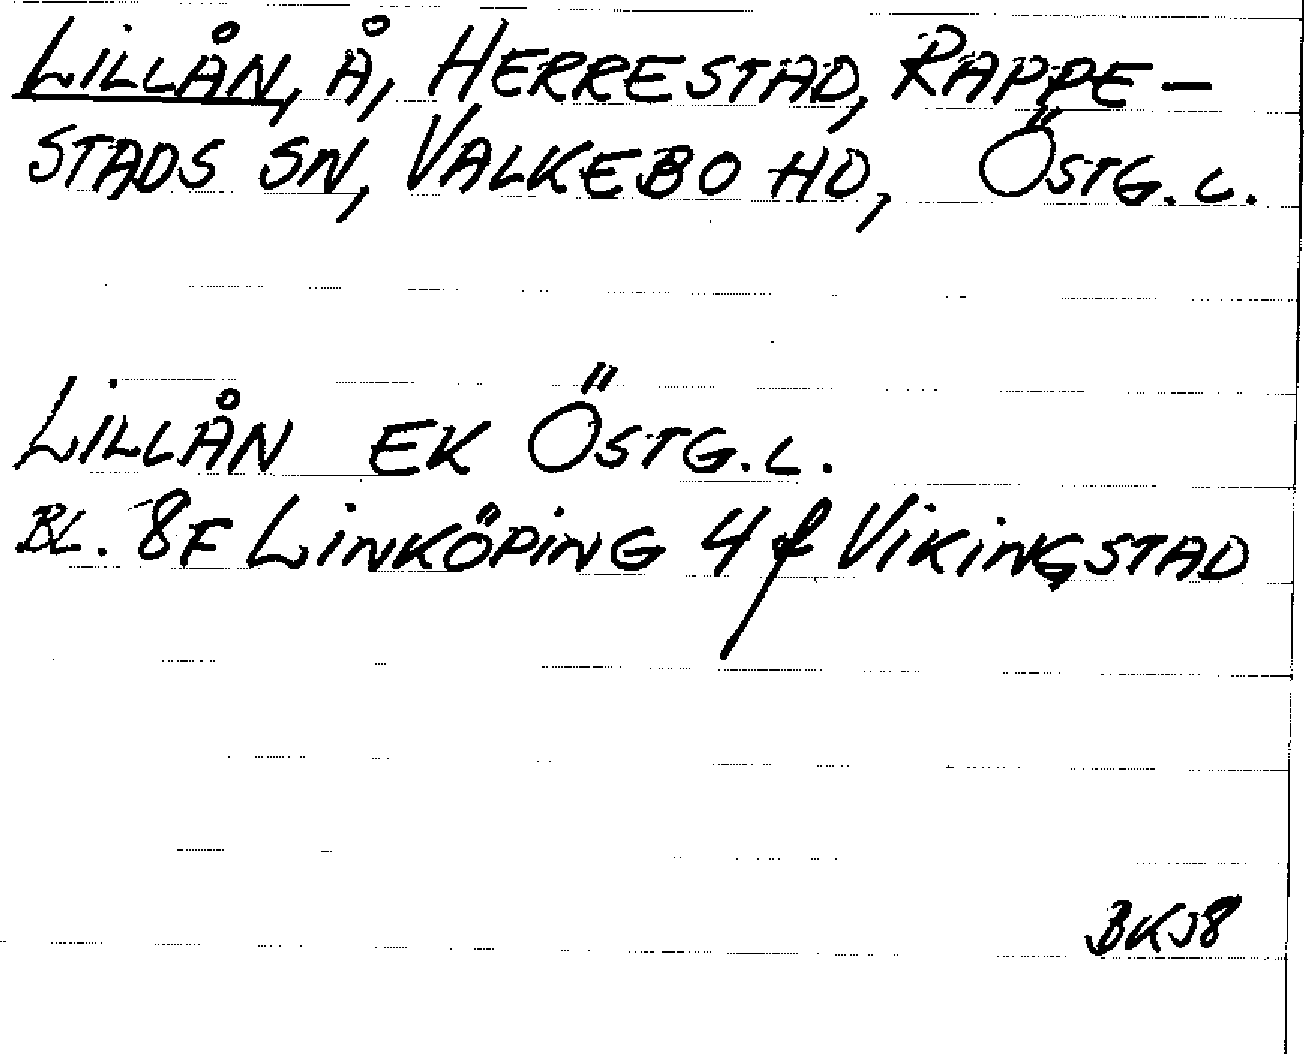 LILLÅN, Å, HERRESTAD, RAPPE-
STADS SN, VALKEBO HD, ÖSTG. L.
LILLÅN EK ÖSTG. L.
BL. 8F LINKÖPING 4f VIKINGSTAD
BKJ8